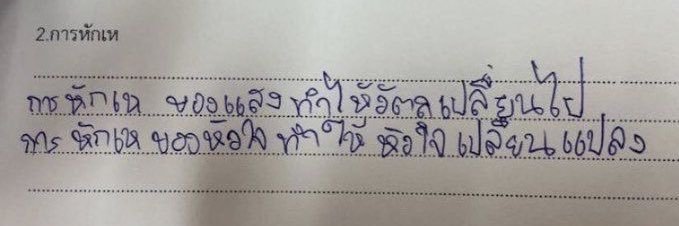 2.การหักเห
การหักเห ของแสง ทำให้วัตถุเปลี่ยนไป
การ หักเห ของหัวใจ ทำให้ หัวใจ เปลี่ยนแปลง